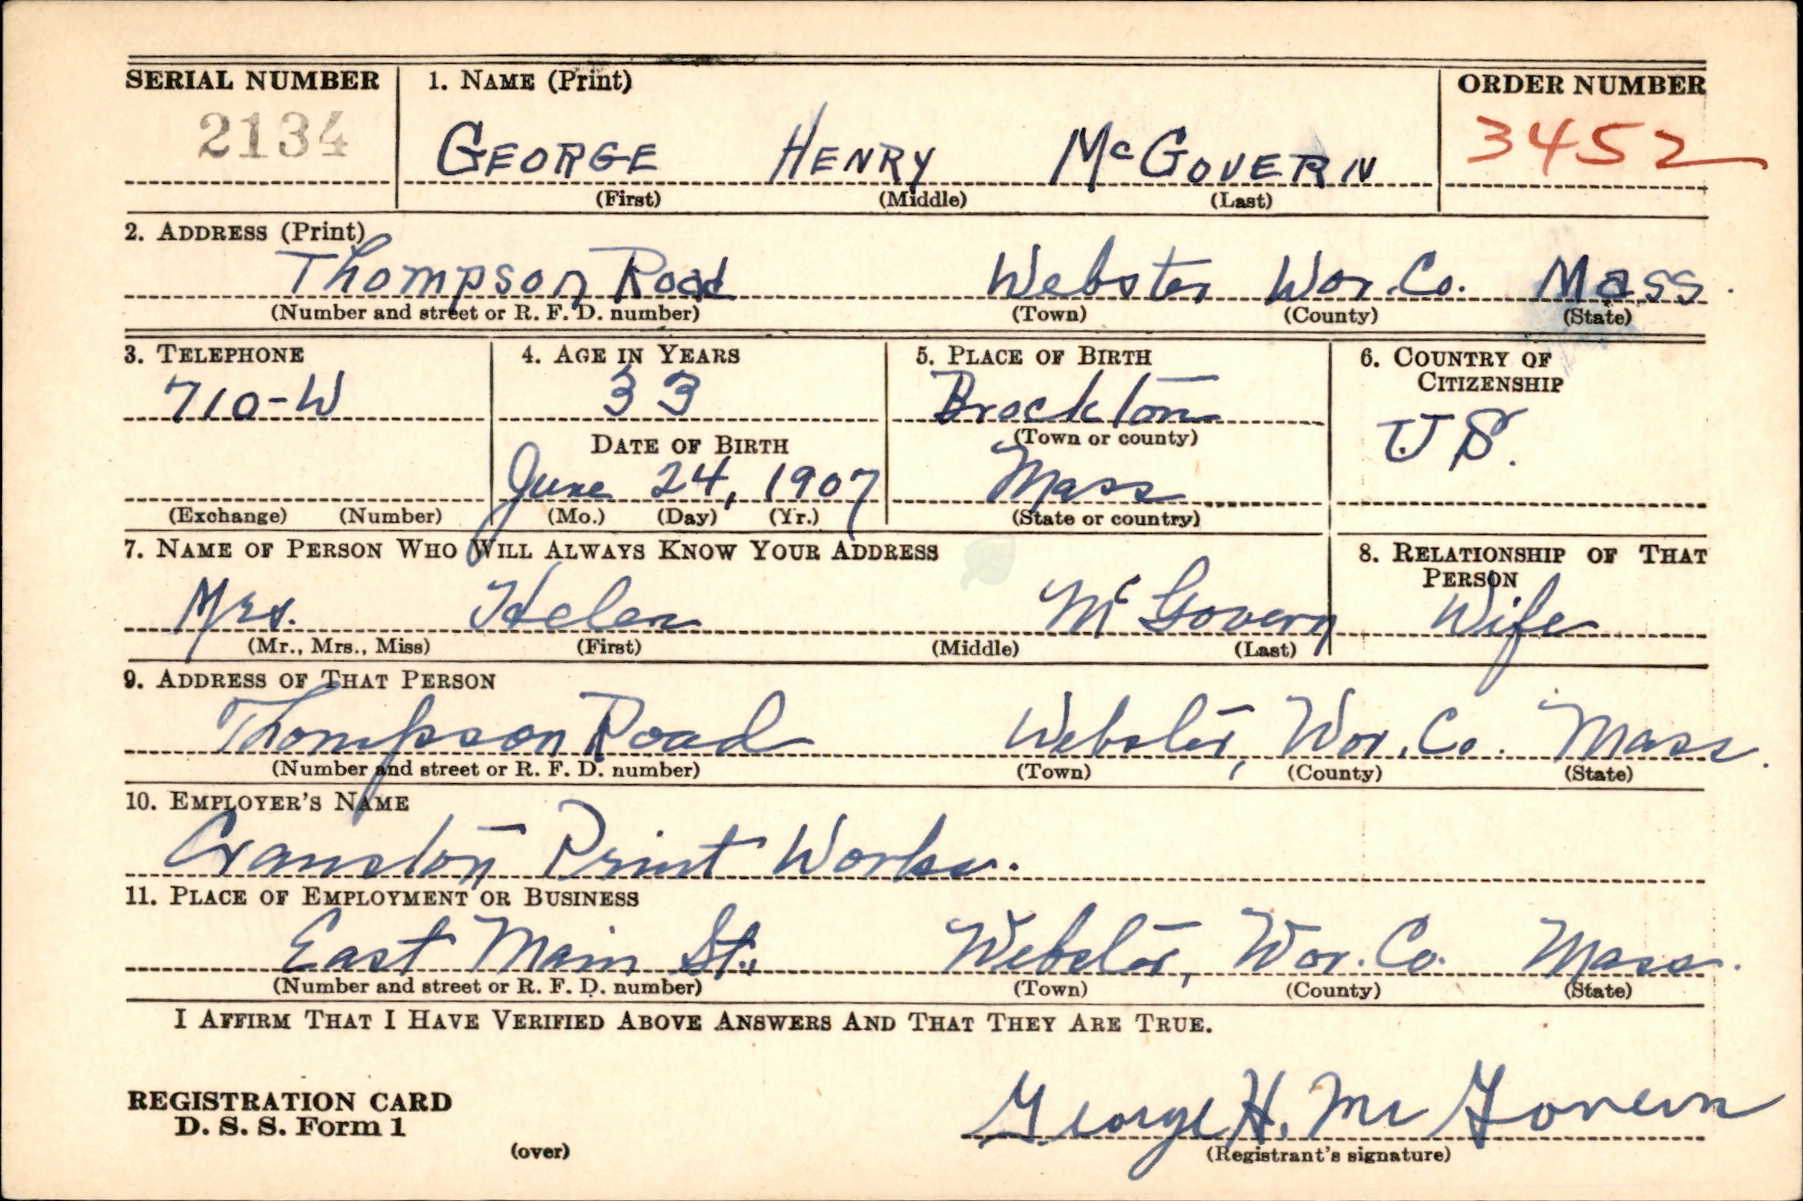 SERIAL NUMBER 1. NAME (Print) ORDER NUMBER
2134 GEORGE HENRY McGOVERN 3452
(First) (Middle) (Last)
2. ADDRESS (Print)
Thompson Road Webster Wor. Co. Mass.
(Number and street or R. F. D. number) (Town) (County) (State)
3. TELEPHONE 4. AGE IN YEARS 5. PLACE OF BIRTH 6. COUNTRY OF
CITIZENSHIP
710-W 33 Brockton U S.
DATE OF BIRTH (Town or county)
June 24, 1907 Mass
(Exchange) (Number) (Mo.) (Day) (Yr.) (State or country)
7. NAME OF PERSON WHO WILL ALWAYS KNOW YOUR ADDRESS 8. RELATIONSHIP OF THAT
PERSON
Mrs. Helen McGovern Wife
(Mr., Mrs., Miss) (First) (Middle) (Last)
9. ADDRESS OF THAT PERSON
Thompson Road Webster, Wor. Co. Mass.
(Number and street or R. F. D. number) (Town) (County) (State)
10. EMPLOYER'S NAME
Cranston Print Works.
11. PLACE OF EMPLOYMENT OR BUSINESS
East Main St., Webster, Wor. Co. Mass.
(Number and street or R. F. D. number) (Town) (County) (State)
I AFFIRM THAT I HAVE VERIFIED ABOVE ANSWERS AND THAT THEY ARE TRUE.
REGISTRATION CARD
D. S. S. Form 1 George H. McGovern
(over) (Registrant's signature)